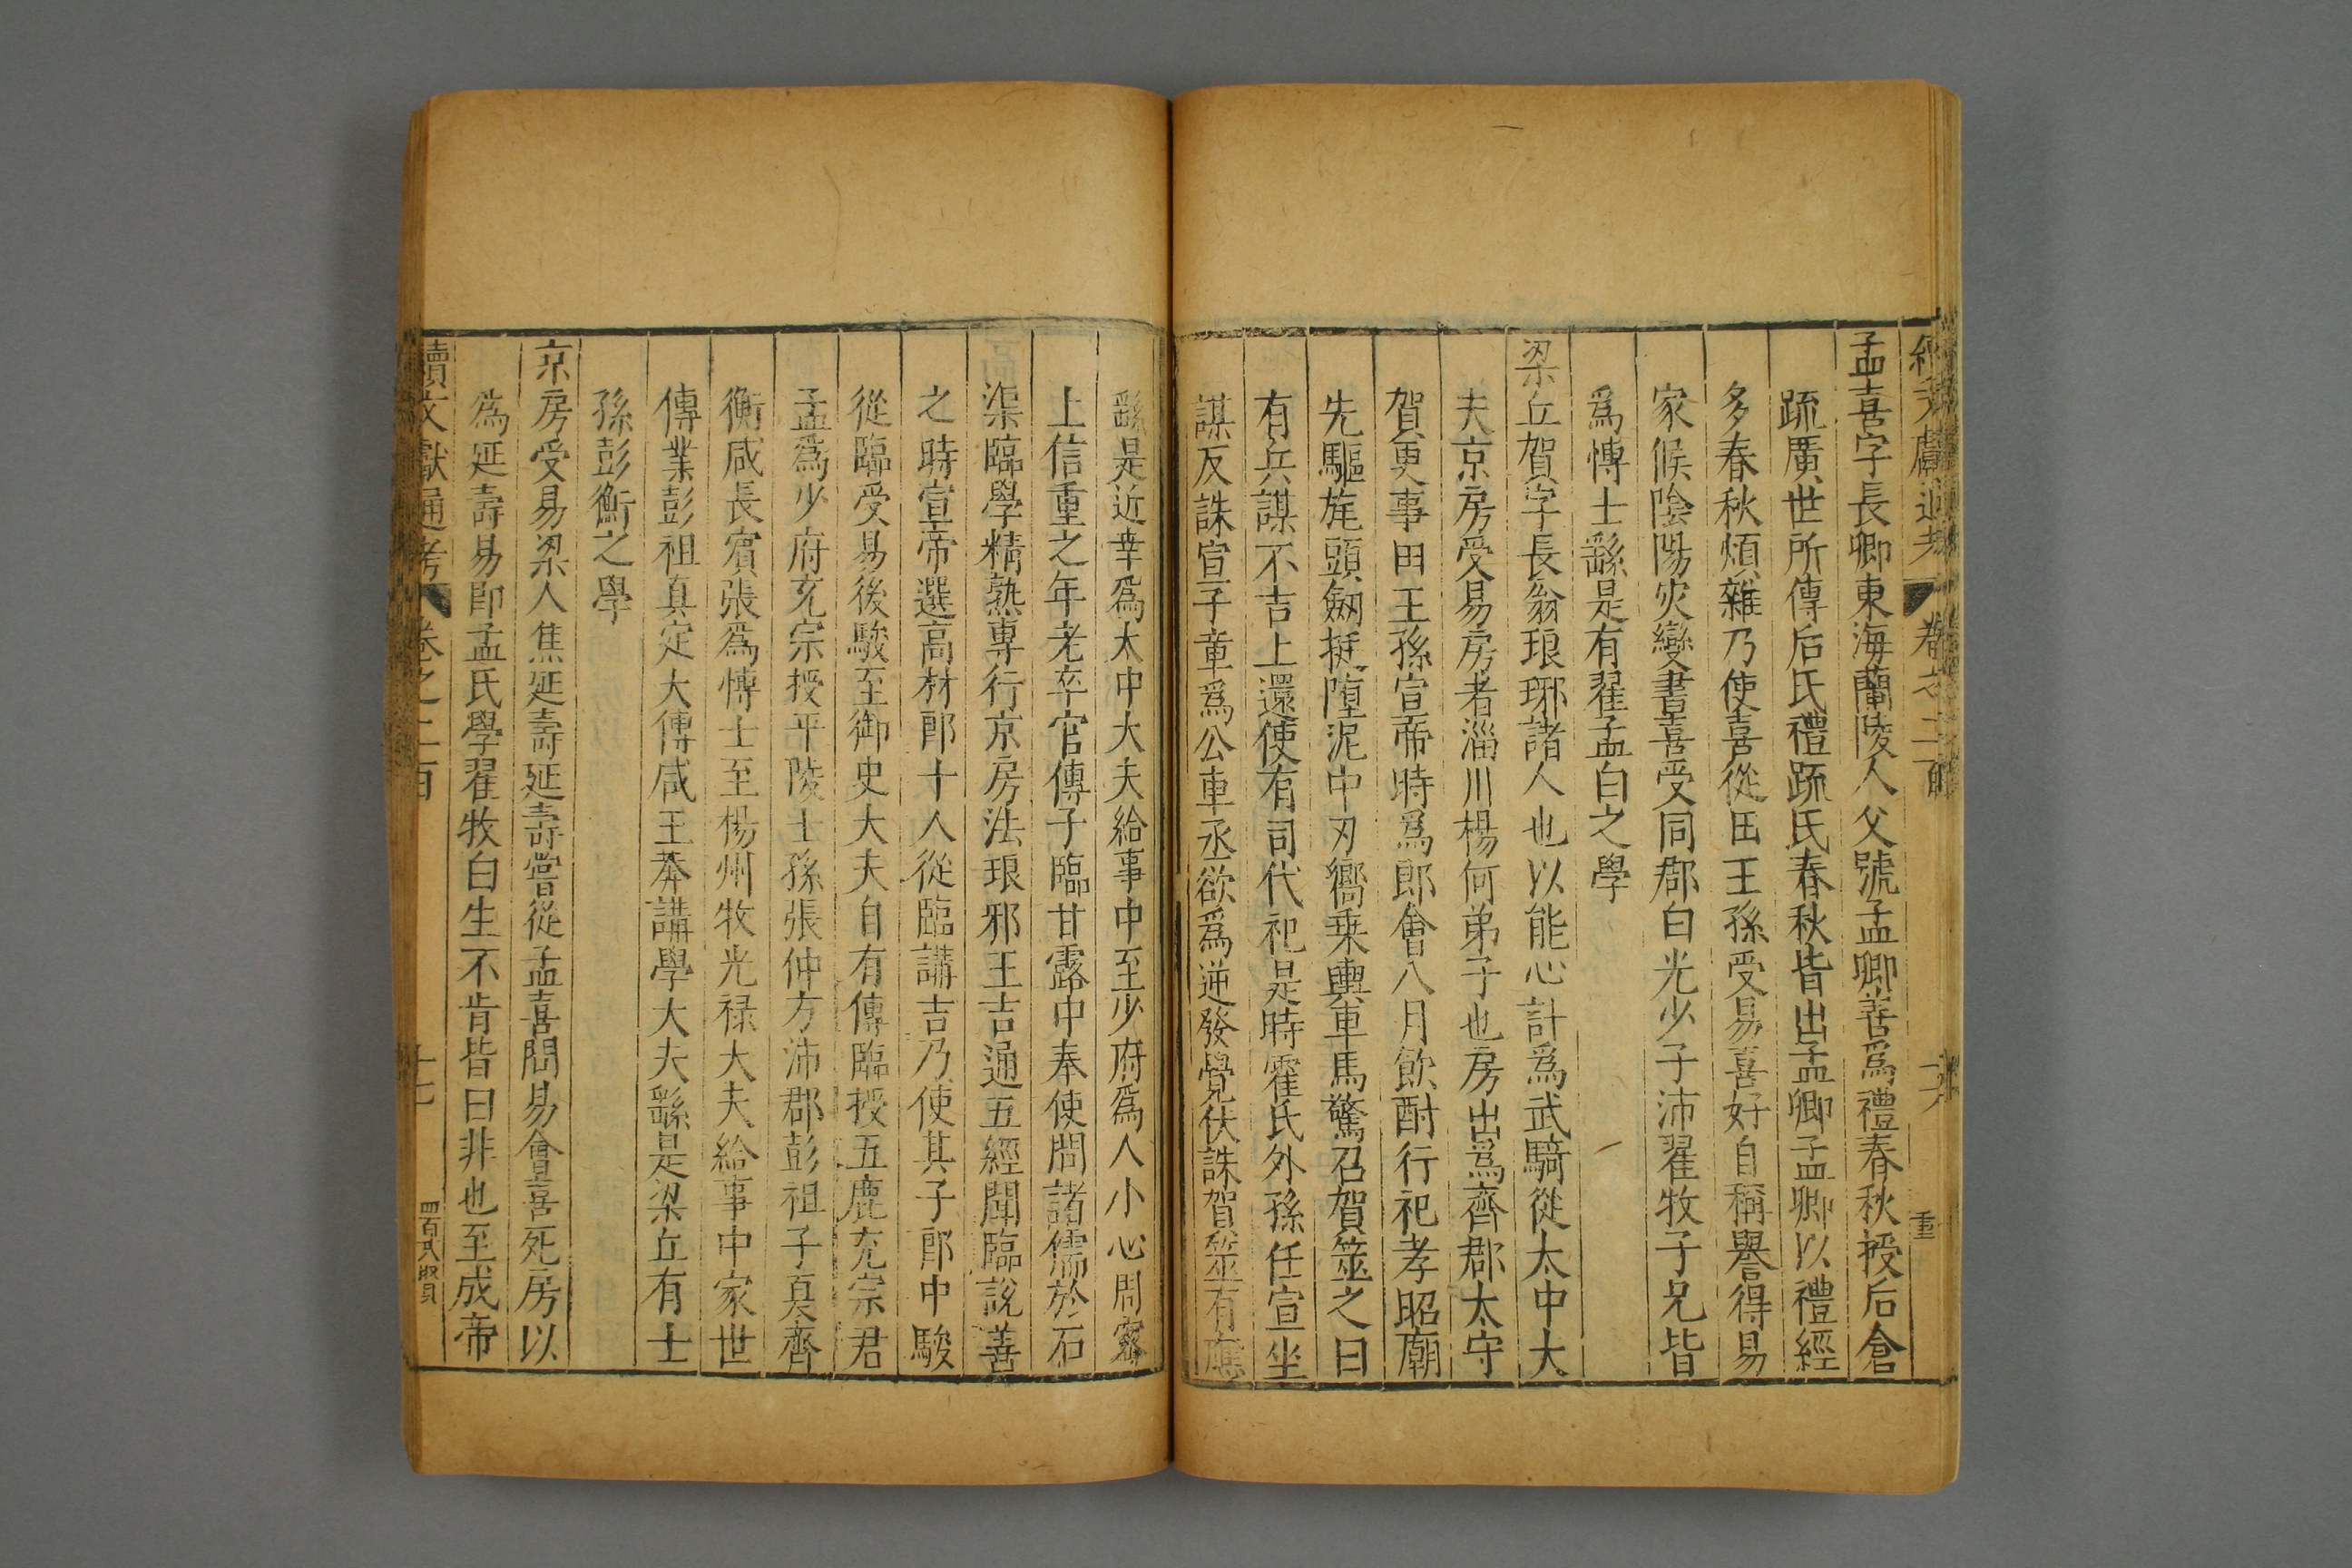 孟喜字長卿東海蘭陵人父號孟卿善爲禮春秋授后倉
疏廣世所傳后氏禮疏氏春秋皆出孟卿孟卿以禮經
多春秋煩雜乃使喜從田王孫受易喜好自稱譽得易
家候陰陽灾變書喜受同郡白光少子沛翟牧子兄皆
爲博士繇是有翟孟白之學
梁丘賀字長翁琅琊諸人也以能心計爲武騎從太中大
夫京房受易房者淄川楊何弟子也房出爲齊郡太守
賀更事田王孫宣帝時爲郎會八月飲酎行祀孝昭廟
先驅旄頭劒挺墮泥中刃嚮乘輿車馬驚召賀筮之曰
有兵謀不吉上還使有司代祀是時霍氏外孫任宣坐
謀反誅宣子章爲公車丞欲爲逆發覺伏誅賀筮有應
繇是近幸爲太中大夫給事中至少府爲人小心周密
上信重之年老卒官傳子臨甘露中奉使問諸儒於石
渠臨學精熟專行京房法琅邪王吉通五經聞臨說善
之時宣帝選高材郎十人從臨講吉乃使其子郎中駿
從臨受易後駿至御史大夫自有傳臨授五鹿充宗君
孟爲少府充宗授平陵士孫張仲方沛郡彭祖子真齊
衡咸長賓張爲博士至楊州牧光禄大夫給事中家世
傳業彭祖真定大傅咸王莽講學大夫繇是梁丘有士
孫彭衡之學
京房受易梁人焦延壽延壽嘗從孟喜問易會喜死房以
為延壽易卽孟氏學翟牧白生不肯皆曰非也至成帝
續文獻通考 卷之二百 十七 四百八 賢